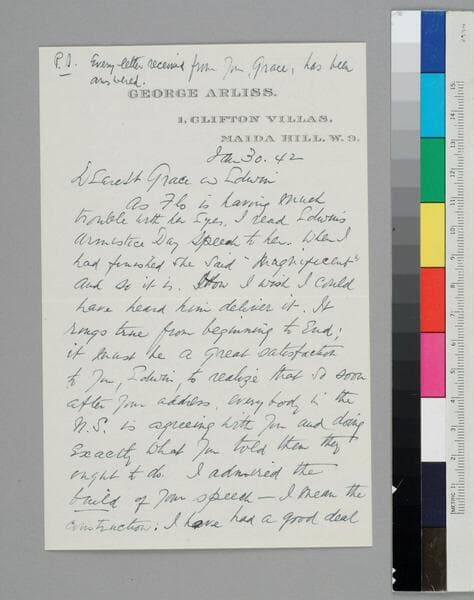 P.S. Every letter received from you, Grace, has been
answered.
GEORGE ARLISS.
1, CLIFTON VILLAS,
MAIDA HILL, W. 9.
Jan 30. 42
Dearest Grace & Edwin
As Flo is having much
trouble with her Eyes, I read Edwin's
Armistice Day Speech to her. When I
had finished she said "Magnificent"
and so it is. How I wish I could
have heard him deliver it. It
rings true from beginning to End;
it must be a great satisfaction
to you, Edwin, to realize that so soon
after your address, everybody in the
U.S. is agreeing with you and doing
Exactly what you told them they
ought to do. I admired the
build of your speech — I mean the
construction: I have had a good deal